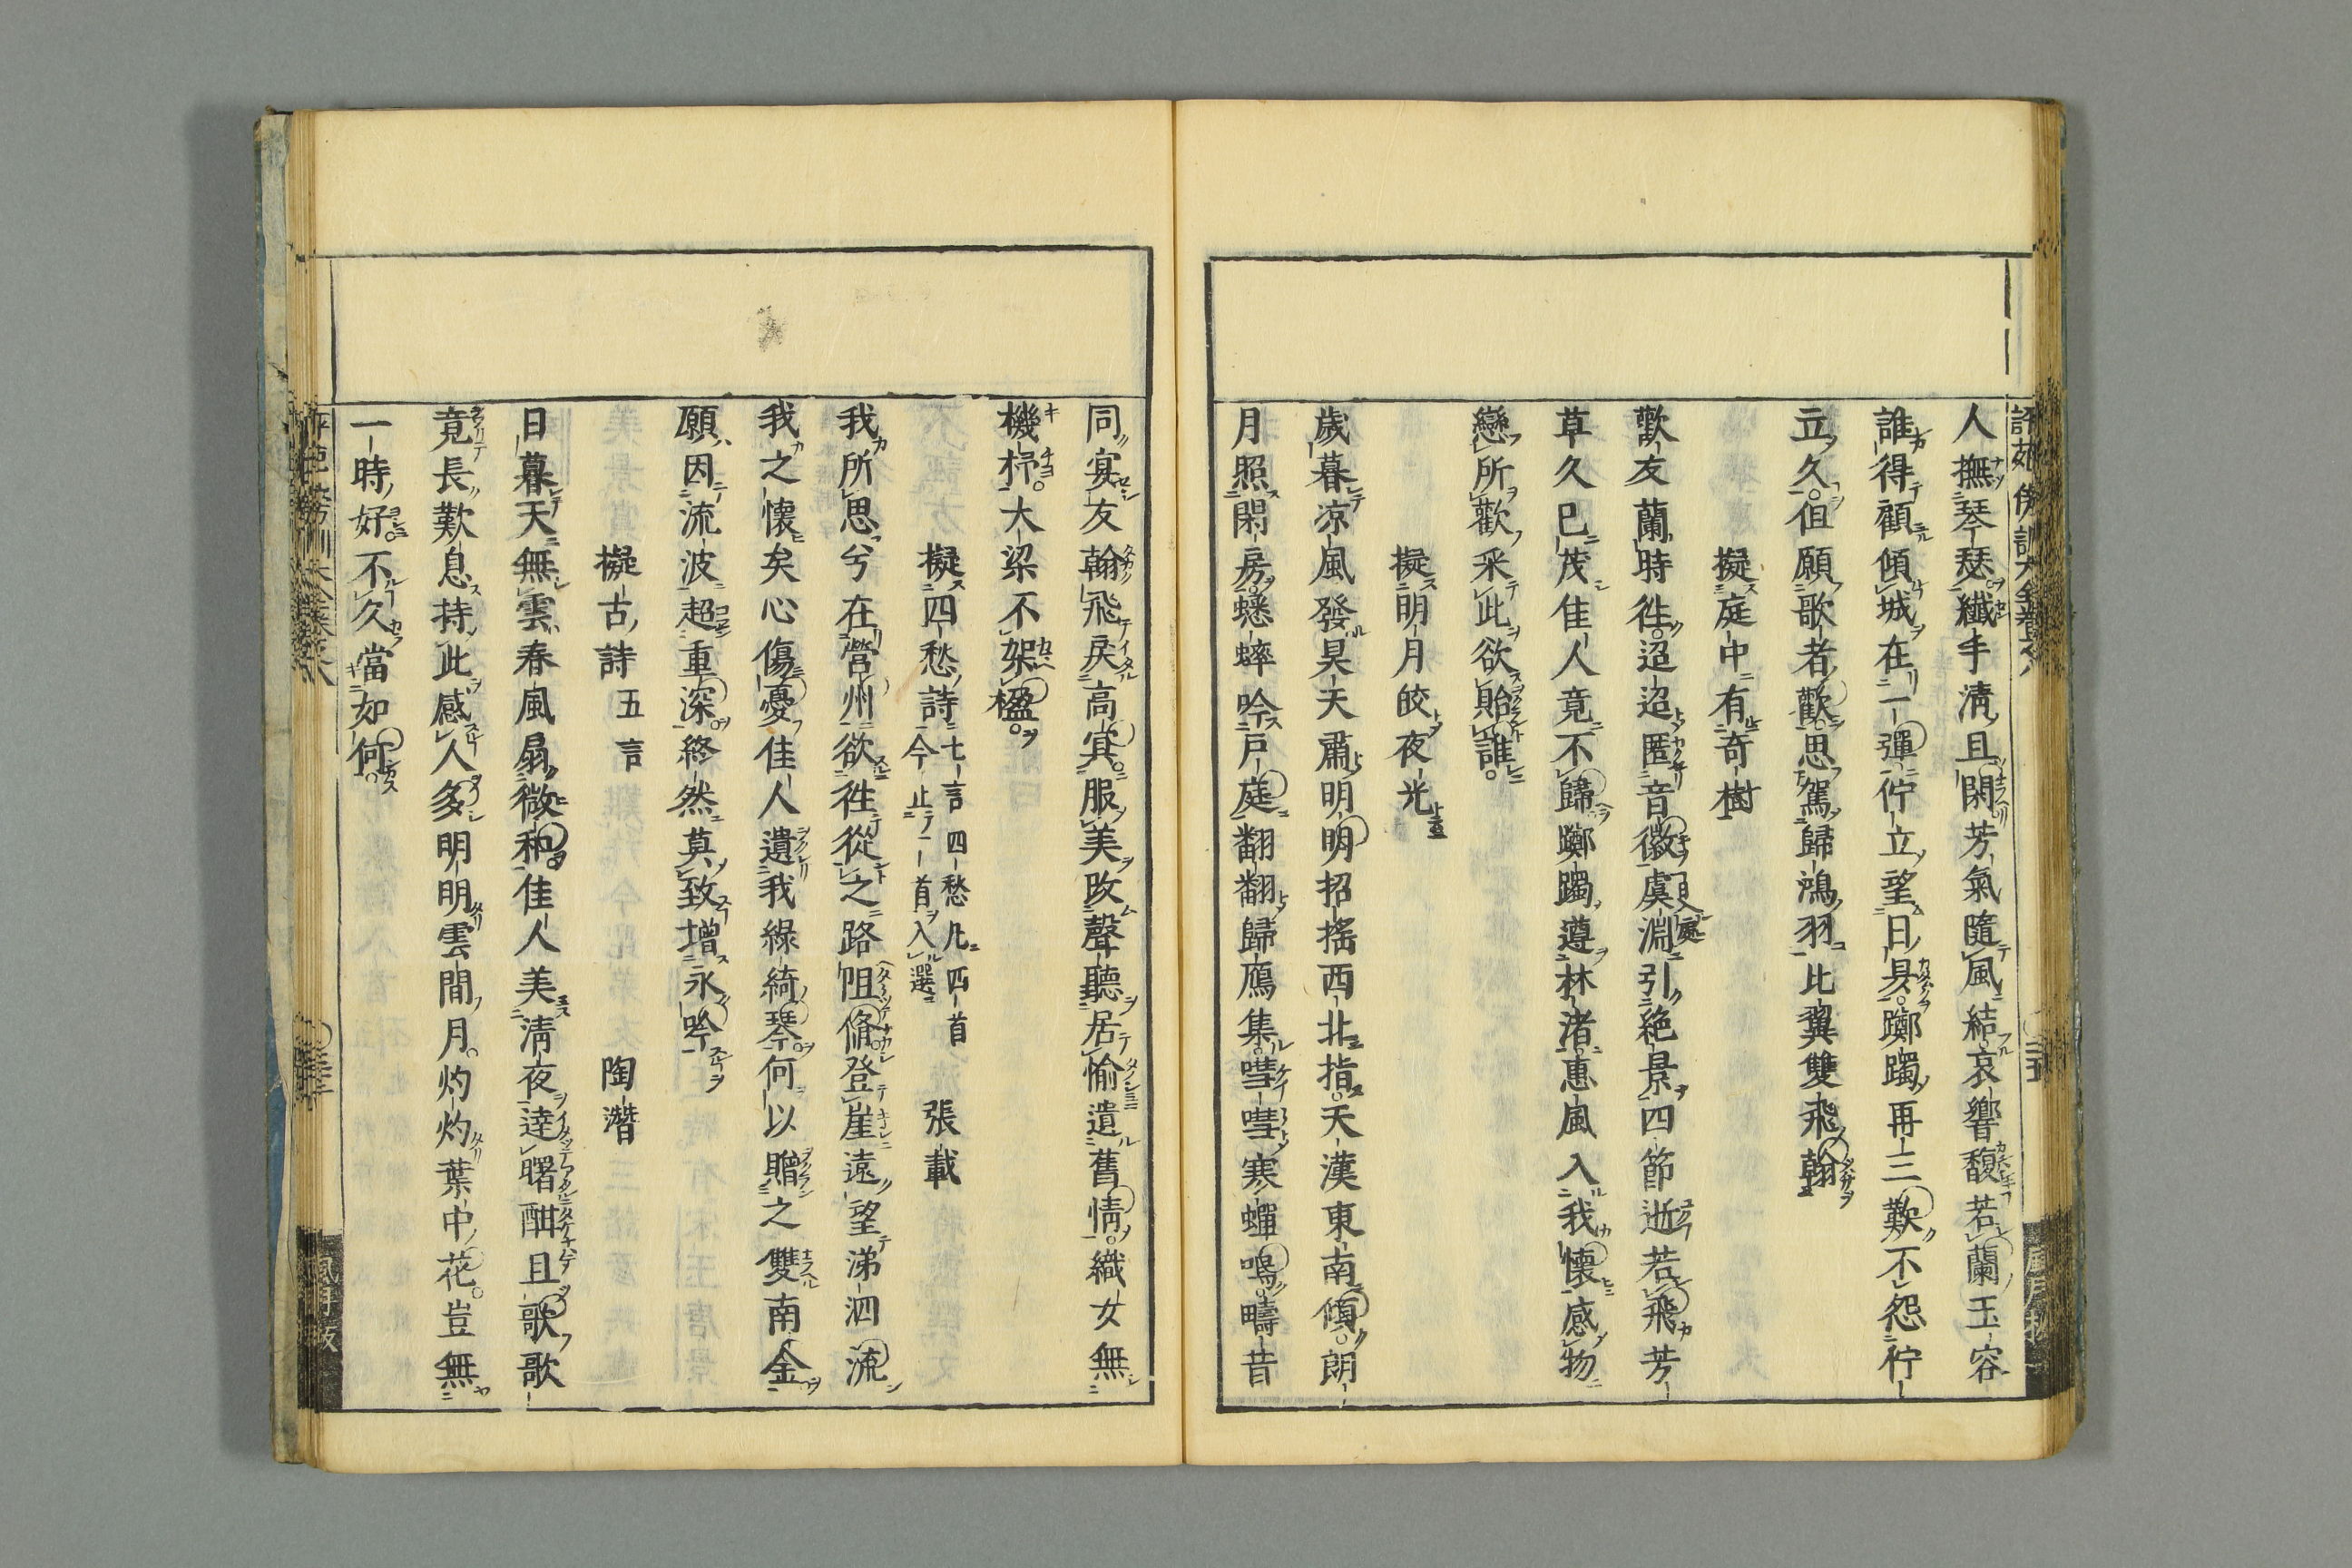 人撫琴瑟纖手清且閑芳氣隨風結哀響馥若蘭玉容
誰得顧傾城在一彈佇立望日昃躑躅再三歎不怨佇
立久但願歌者歡思駕歸鴻羽比翼雙飛翰
擬庭中有奇樹
歡友蘭時徃迢迢匿音徽虞淵引絶景四節逝若飛芳
草久已茂佳人竟不歸躑躅遵林渚惠風入我懷感物
戀所歡采此欲貽誰
擬明月皎夜光
歲暮凉風發昊天肅明明招搖西北指天漢東南傾朗
月照閑房蟋蟀吟戸庭翻翻歸鴈集嘒嘒寒蟬鳴疇昔
同宴友翰飛戾高冥服美改聲聽居愉遺舊情織女無
機杼大梁不架楹
擬四愁詩 七言 四愁凡四首 今止一首入選 張載
我所思兮在營州欲徃從之路阻脩登崖遠望涕泗流
我之懷矣心傷憂佳人遺我綠綺琴何以贈之雙南金
願因流波超重深終然莫致增永吟
擬古詩 五言 陶潛
日暮天無雲春風扇微和佳人美清夜達曙酣且歌歌
竟長歎息持此感人多明明雲間月灼灼葉中花豈無
一時好不久當如何